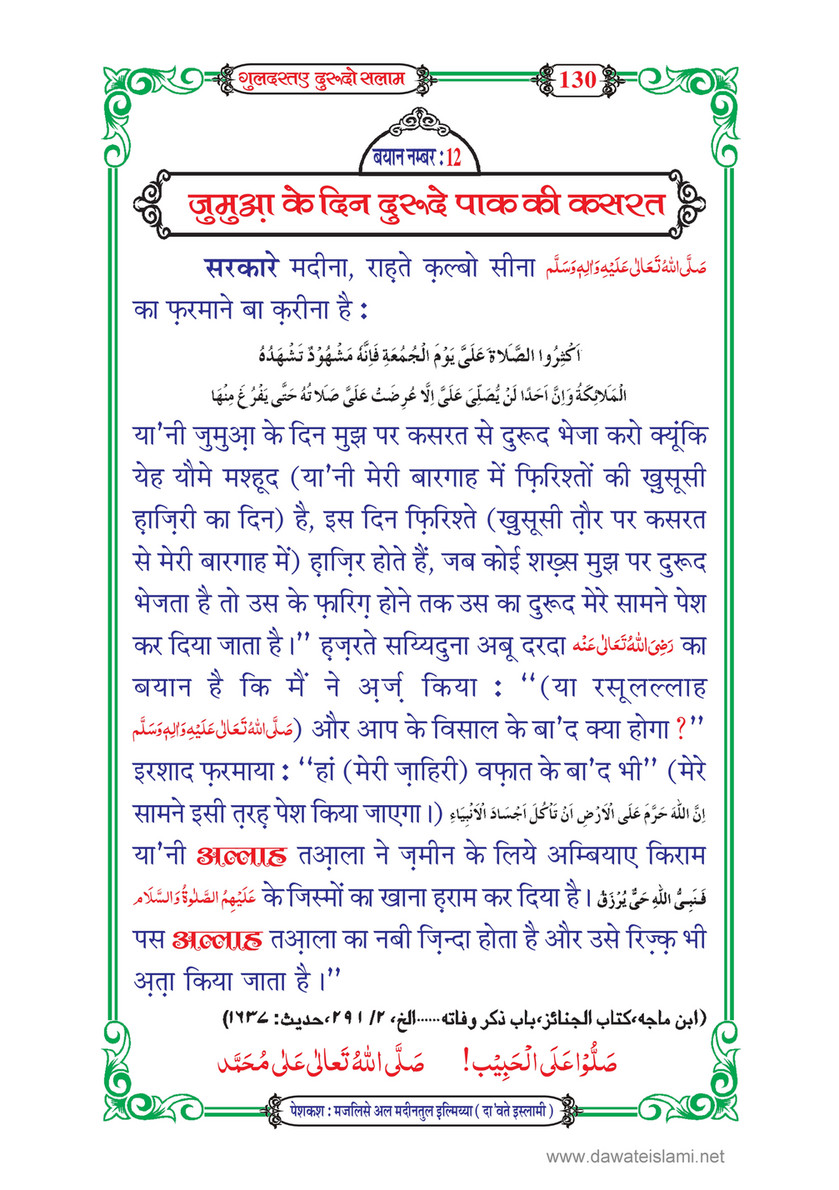 गुलदस्तए दुरूदो सलाम
130
बयान नम्बर : 12
जुमुआ़ के दिन दुरूदे पाक की कसरत
सरकारे मदीना, राह़ते क़ल्बो सीना صَلَّى اللهُ تَعَالٰى عَلَيْهِ وَاٰلِهٖ وَسَلَّم
का फ़रमाने बा क़रीना है :
اَكْثِرُوا الصَّلَاةَ عَلَىَّ يَوْمَ الْجُمُعَةِ فَاِنَّهٗ مَشْهُوْدٌ تَشْهَدُهُ
الْمَلَائِكَةُ وَاِنَّ اَحَدًا لَنْ يُّصَلِّىَ عَلَىَّ اِلَّا عُرِضَتْ عَلَىَّ صَلَاتُهٗ حَتّٰى يَفْرُغَ مِنْهَا
या'नी जुमुआ़ के दिन मुझ पर कसरत से दुरूद भेजा करो क्यूंकि
येह यौमे मश्हूद (या'नी मेरी बारगाह में फ़िरिश्तों की ख़ुसूसी
ह़ाज़िरी का दिन) है, इस दिन फ़िरिश्ते (ख़ुसूसी त़ौर पर कसरत
से मेरी बारगाह में) ह़ाज़िर होते हैं, जब कोई शख़्स मुझ पर दुरूद
भेजता है तो उस के फ़ारिग़ होने तक उस का दुरूद मेरे सामने पेश
कर दिया जाता है।'' ह़ज़रते सय्यिदुना अबू दरदा رَضِىَ اللهُ تَعَالٰى عَنْه का
बयान है कि मैं ने अ़र्ज़ किया : ''(या रसूलल्लाह
صَلَّى اللهُ تَعَالٰى عَلَيْهِ وَاٰلِهٖ وَسَلَّم) और आप के विसाल के बा'द क्या होगा ?''
इरशाद फ़रमाया : ''हां (मेरी ज़ाहिरी) वफ़ात के बा'द भी'' (मेरे
सामने इसी त़रह़ पेश किया जाएगा।) اِنَّ اللّٰهَ حَرَّمَ عَلَى الْاَرْضِ اَنْ تَأْكُلَ اَجْسَادَ الْاَنْبِيَاءِ
या'नी अल्लाह तआ़ला ने ज़मीन के लिये अम्बियाए किराम
عَلَيْهِمُ الصَّلٰوةُ وَالسَّلَام के जिस्मों का खाना ह़राम कर दिया है। فَنَبِىُّ اللّٰهِ حَىٌّ يُرْزَقُ
पस अल्लाह तआ़ला का नबी ज़िन्दा होता है और उसे रिज़्क़ भी
अ़त़ा किया जाता है।''
(ابن ماجه، كتاب الجنائز، باب ذكر وفاته......الخ، ٢/ ٢٩١، حديث: ١٦٣٧)
صَلُّوْا عَلَى الْحَبِيْب! صَلَّى اللهُ تَعَالٰى عَلٰى مُحَمَّد
पेशकश : मजलिसे अल मदीनतुल इल्मिय्या ( दा'वते इस्लामी )
www.dawateislami.net